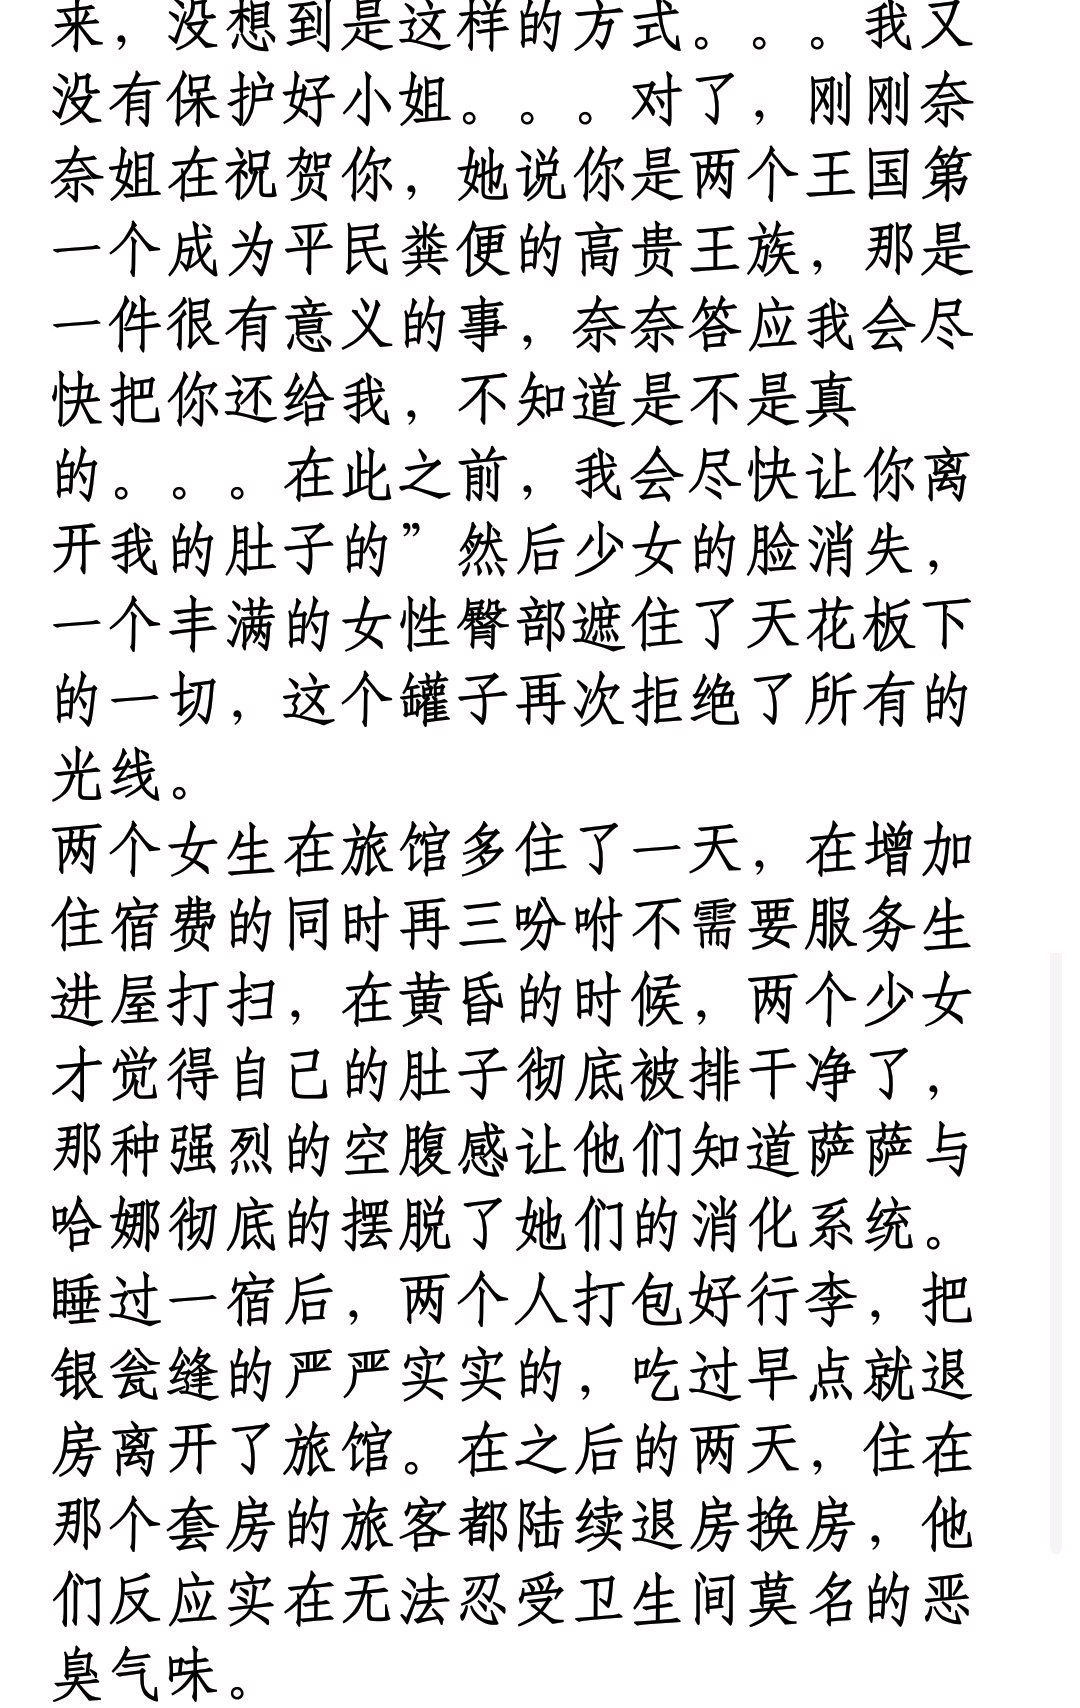 来，没想到是这样的方式。。。我又
没有保护好小姐。。。对了，刚刚奈
奈姐在祝贺你，她说你是两个王国第
一个成为平民粪便的高贵王族，那是
一件很有意义的事，奈奈答应我会尽
快把你还给我，不知道是不是真
的。。。在此之前，我会尽快让你离
开我的肚子的”然后少女的脸消失，
一个丰满的女性臀部遮住了天花板下
的一切，这个罐子再次拒绝了所有的
光线。
两个女生在旅馆多住了一天，在增加
住宿费的同时再三吩咐不需要服务生
进屋打扫，在黄昏的时候，两个少女
才觉得自己的肚子彻底被排干净了，
那种强烈的空腹感让他们知道萨萨与
哈娜彻底的摆脱了她们的消化系统。
睡过一宿后，两个人打包好行李，把
银瓮缝的严严实实的，吃过早点就退
房离开了旅馆。在之后的两天，住在
那个套房的旅客都陆续退房换房，他
们反应实在无法忍受卫生间莫名的恶
臭气味。